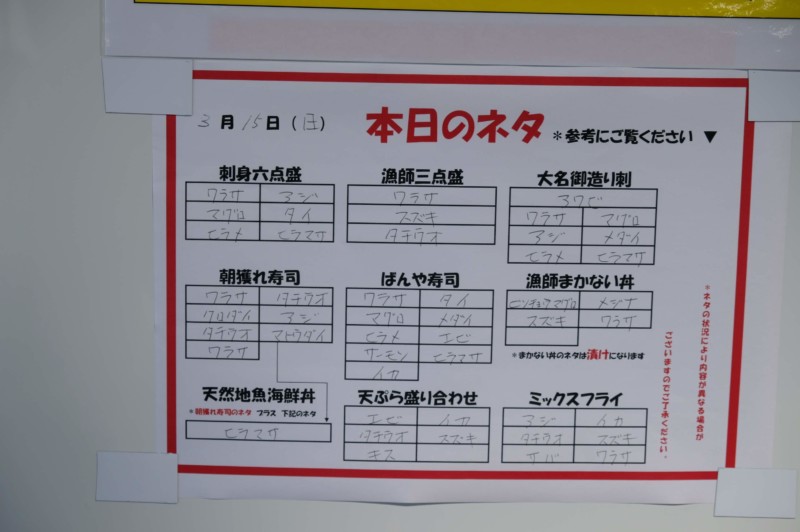 3月15日(日) 本日のネタ *参考にご覧ください ▼
刺身六点盛
ワラサ アジ
マグロ タイ
ヒラメ ヒラマサ
漁師三点盛
ワラサ
スズキ
タチウオ
大名御造り刺
アワビ
ワラサ マグロ
アジ メダイ
ヒラメ ヒラマサ
朝獲れ寿司
ワラサ タチウオ
クロダイ アジ
タチウオ マトウダイ
ワラサ
ばんや寿司
ワラサ タイ
マグロ メダイ
ヒラメ エビ
サーモン ヒラマサ
イカ
漁師まかない丼
ビンチョウマグロ メジナ
スズキ ワラサ
*まかない丼のネタは漬けになります
天然地魚海鮮丼
*朝獲れ寿司のネタ プラス 下記のネタ
ヒラマサ
天ぷら盛り合わせ
エビ イカ
タチウオ スズキ
キス
ミックスフライ
アジ イカ
タチウオ スズキ
サバ ワラサ
*ネタの状況により内容が異なる場合が
ございますのでご了承ください。